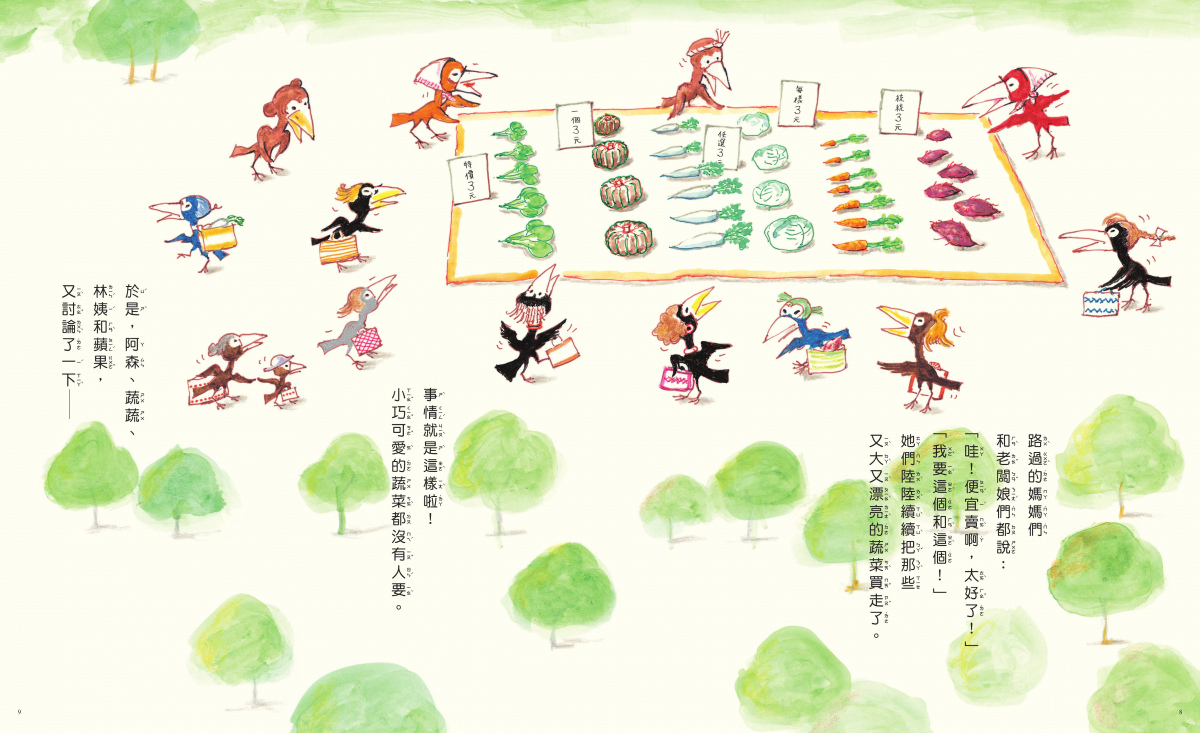 特價3元
一個3元
任選3元
每樣3元
統統3元
路過的媽媽們
和老闆娘們都說：
「哇！便宜賣啊，太好了！」
「我要這個和這個！」
她們陸陸續續把那些
又大又漂亮的蔬菜買走了。
事情就是這樣啦！
小巧可愛的蔬菜都沒有人要。
於是，阿森、蔬蔬、
林姨和蘋果，
又討論了一下——
8
9